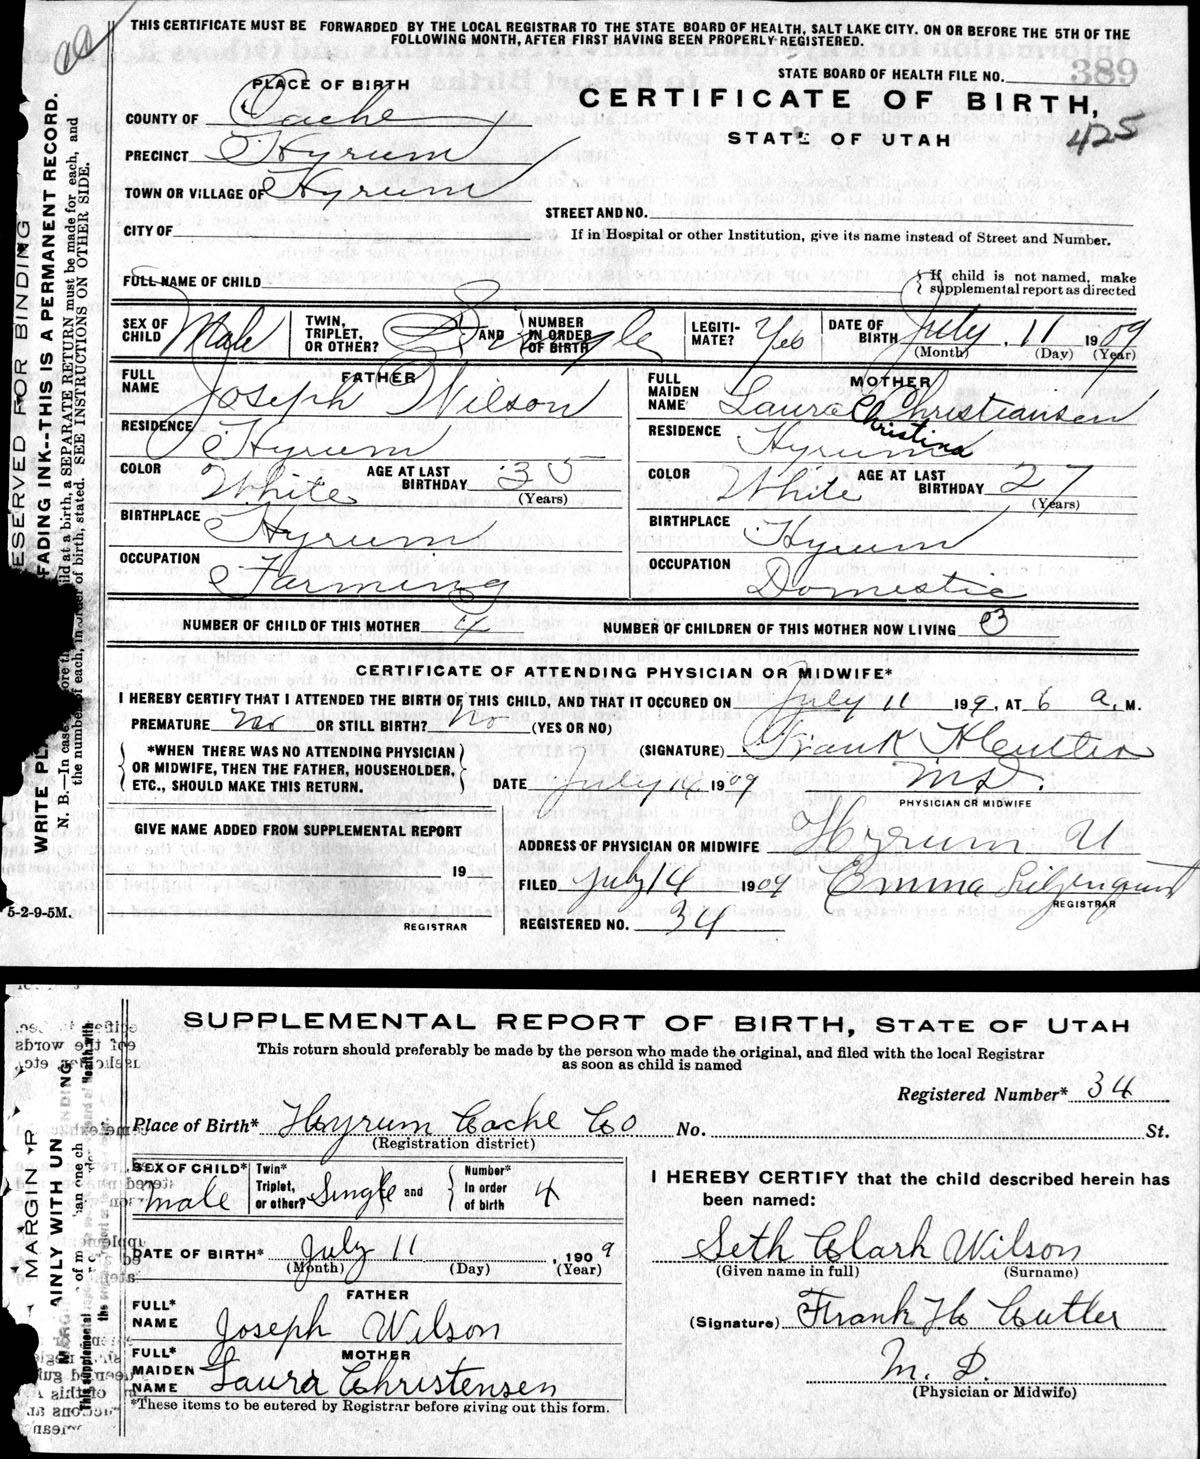 THIS CERTIFICATE MUST BE FORWARDED BY THE LOCAL REGISTRAR TO THE STATE BOARD OF HEALTH, SALT LAKE CITY. ON OR BEFORE THE 5TH OF THE
FOLLOWING MONTH, AFTER FIRST HAVING BEEN PROPERLY REGISTERED.
STATE BOARD OF HEALTH FILE NO. 389
PLACE OF BIRTH
CERTIFICATE OF BIRTH,
COUNTY OF Cache
STATE OF UTAH
425
PRECINCT Hyrum
TOWN OR VILLAGE OF Hyrum
STREET AND NO.
CITY OF
If in Hospital or other Institution, give its name instead of Street and Number.
FULL NAME OF CHILD
{ If child is not named, make
supplemental report as directed
SEX OF CHILD Male TWIN, TRIPLET, OR OTHER? Single AND NUMBER IN ORDER OF BIRTH LEGITI-MATE? Yes DATE OF BIRTH July 11 1909
(Month) (Day) (Year)
FATHER
FULL NAME Joseph Wilson
RESIDENCE Hyrum
COLOR White AGE AT LAST BIRTHDAY 35
(Years)
BIRTHPLACE Hyrum
OCCUPATION Farming
MOTHER
FULL MAIDEN NAME Laura Christina Christiansen
RESIDENCE Hyrum
COLOR White AGE AT LAST BIRTHDAY 27
(Years)
BIRTHPLACE Hyrum
OCCUPATION Domestic
NUMBER OF CHILD OF THIS MOTHER 4 NUMBER OF CHILDREN OF THIS MOTHER NOW LIVING 3
CERTIFICATE OF ATTENDING PHYSICIAN OR MIDWIFE*
I HEREBY CERTIFY THAT I ATTENDED THE BIRTH OF THIS CHILD, AND THAT IT OCCURED ON July 11 199, AT 6 a. M.
PREMATURE no OR STILL BIRTH? No (YES OR NO)
*WHEN THERE WAS NO ATTENDING PHYSICIAN
OR MIDWIFE, THEN THE FATHER, HOUSEHOLDER,
ETC., SHOULD MAKE THIS RETURN.
(SIGNATURE) Frank H Cutler
DATE July 14 1909 M.D.
PHYSICIAN OR MIDWIFE
GIVE NAME ADDED FROM SUPPLEMENTAL REPORT
19
REGISTRAR
ADDRESS OF PHYSICIAN OR MIDWIFE Hyrum U
FILED July 14 1909 Emma Liljenquist
REGISTRAR
REGISTERED NO. 34
5-2-9-5M.
ESERVED FOR BINDING
WRITE PL FADING INK--THIS IS A PERMANENT RECORD.
N. B.—In case ore th ild at a birth, a SEPARATE RETURN must be made for each, and
the number of each, in order of birth, stated. SEE INSTRUCTIONS ON OTHER SIDE.
SUPPLEMENTAL REPORT OF BIRTH, STATE OF UTAH
This return should preferably be made by the person who made the original, and filed with the local Registrar
as soon as child is named
Registered Number* 34
Place of Birth* Hyrum Cache Co No. St.
(Registration district)
SEX OF CHILD* Male Twin* Triplet, or other? Single and Number* In order of birth 4
DATE OF BIRTH* July 11, 1909
(Month) (Day) (Year)
FATHER
FULL* NAME Joseph Wilson
MOTHER
FULL* MAIDEN NAME Laura Christensen
*These items to be entered by Registrar before giving out this form.
I HEREBY CERTIFY that the child described herein has
been named:
Seth Clark Wilson
(Given name in full) (Surname)
(Signature) Frank H Cutler
M. D.
(Physician or Midwife)
MARGIN R
AINLY WITH UN